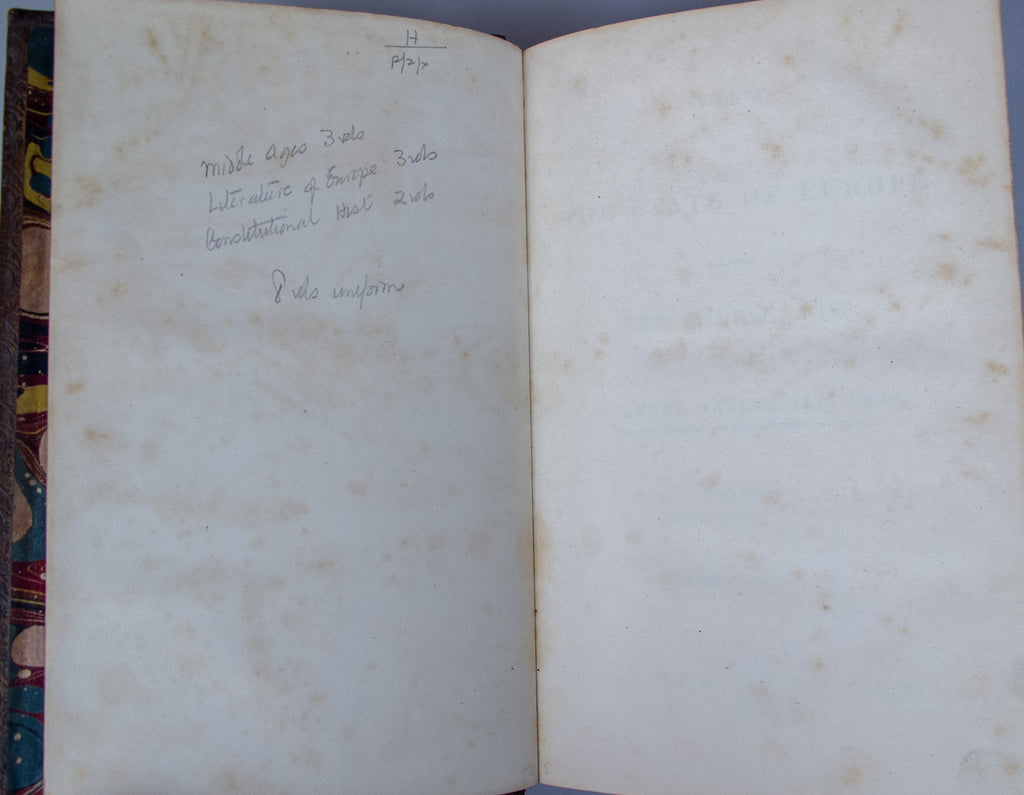 H
P/2/x
Middle Ages 3 vols
Literature of Europe 3 vols
Constitutional Hist 2 vols
8 vols uniform